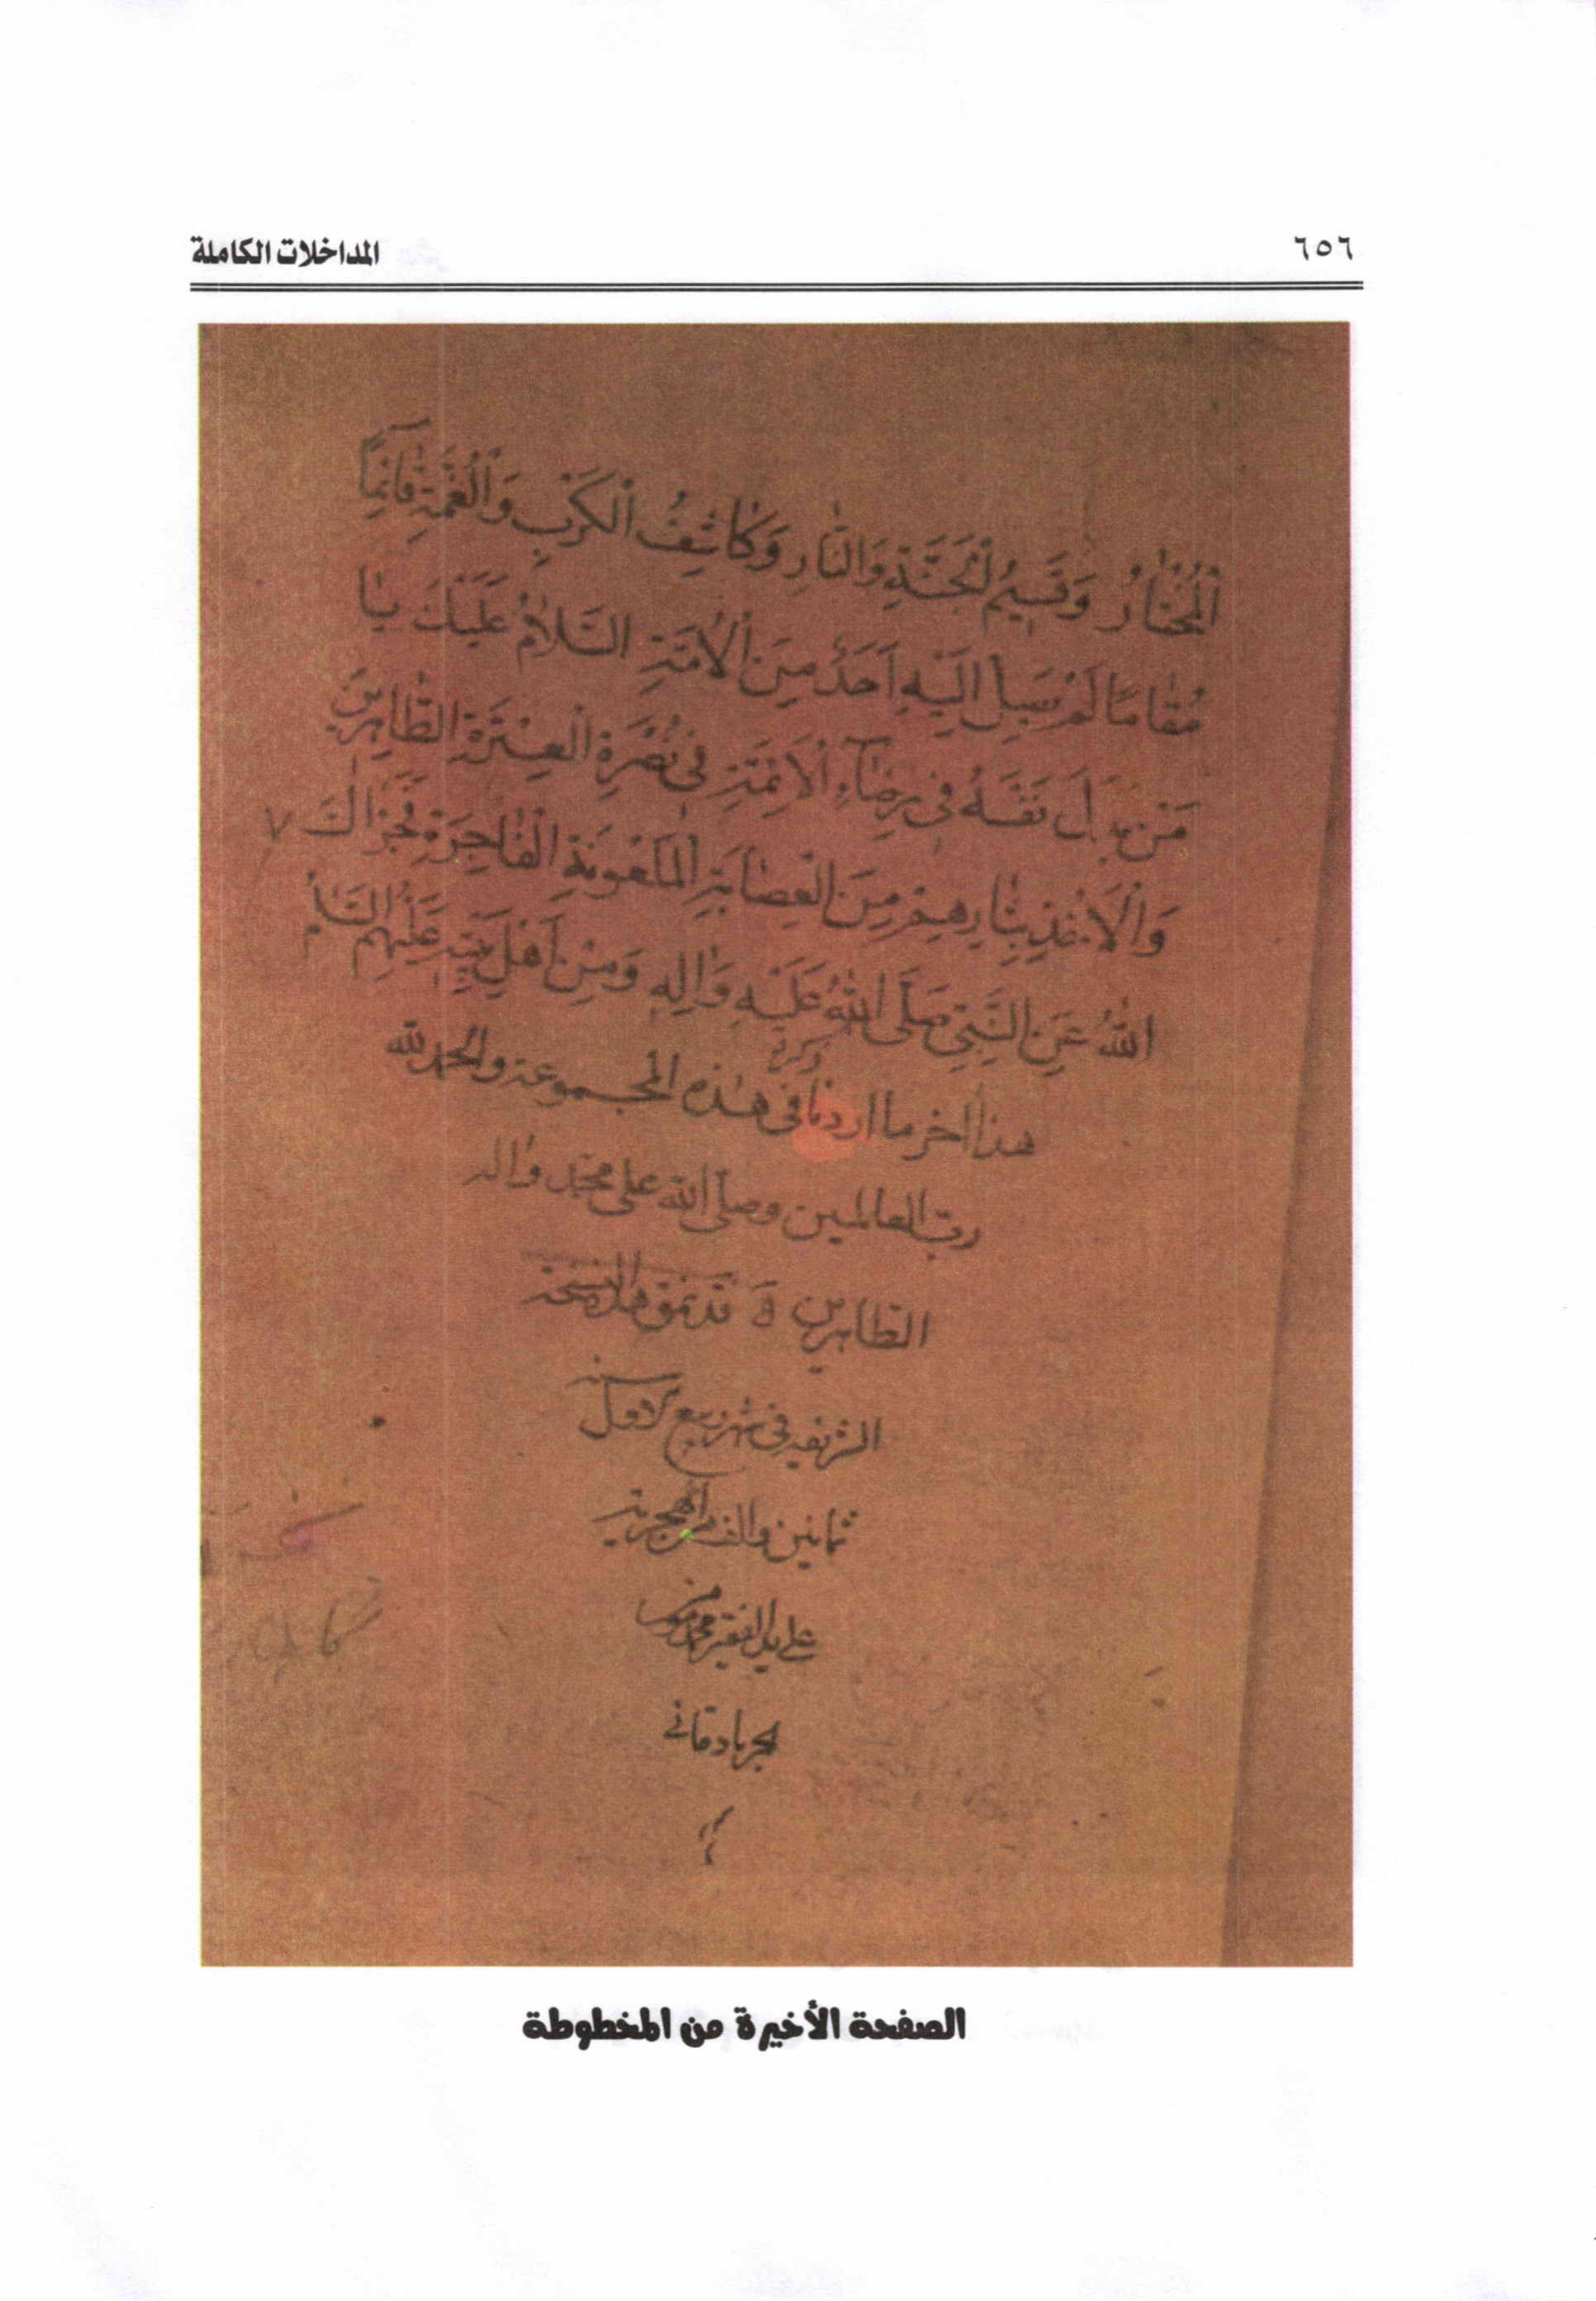 ٦٥٦
المداخلات الكاملة
الْمُخْتٰارُ وَقَسِيمُ الْجَنَّةِ وَالنّٰارِ وَكٰاشِفُ الْكَرْبِ وَالْغُمَّةِ قٰائِمًا
مَقٰامًا لَمْ يَسْبِلْ اِلَيْهِ اَحَدٌ مِنَ الْاُمَّةِ السَّلٰامُ عَلَيْكَ يٰا
مَنْ بَذَلَ نَفْسَهُ فِى رِضٰاءِ الْاَئِمَّةِ فِى نُصْرَةِ الْعِتْرَةِ الطّٰاهِرِينَ
وَالْاَخْذِ بِثٰارِهِمْ مِنَ الْعِصٰابَةِ الْمَلْعُونَةِ الْفٰاجِرَةِ فَجَزٰاكَ ٧
اللّٰهُ عَنِ النَّبِيِّ صَلَّى اللّٰهُ عَلَيْهِ وَاٰلِهِ وَمِنْ اَهْلِ بَيْتِهِ عَلَيْهِمُ السَّلٰامُ
هذا اخر ما اردنا ذكره فى هذه المجموعة والحمد لله
رب العالمين وصلى الله على محمد واله
الطاهرين قد نمق هذه النسخة
الشريفه فى شهر ربيع الاول سنه
ثمانين والف من الهجرية
على يد الفقير محمد
الجربادقانى
الصفحة الأخيرة من المخطوطة